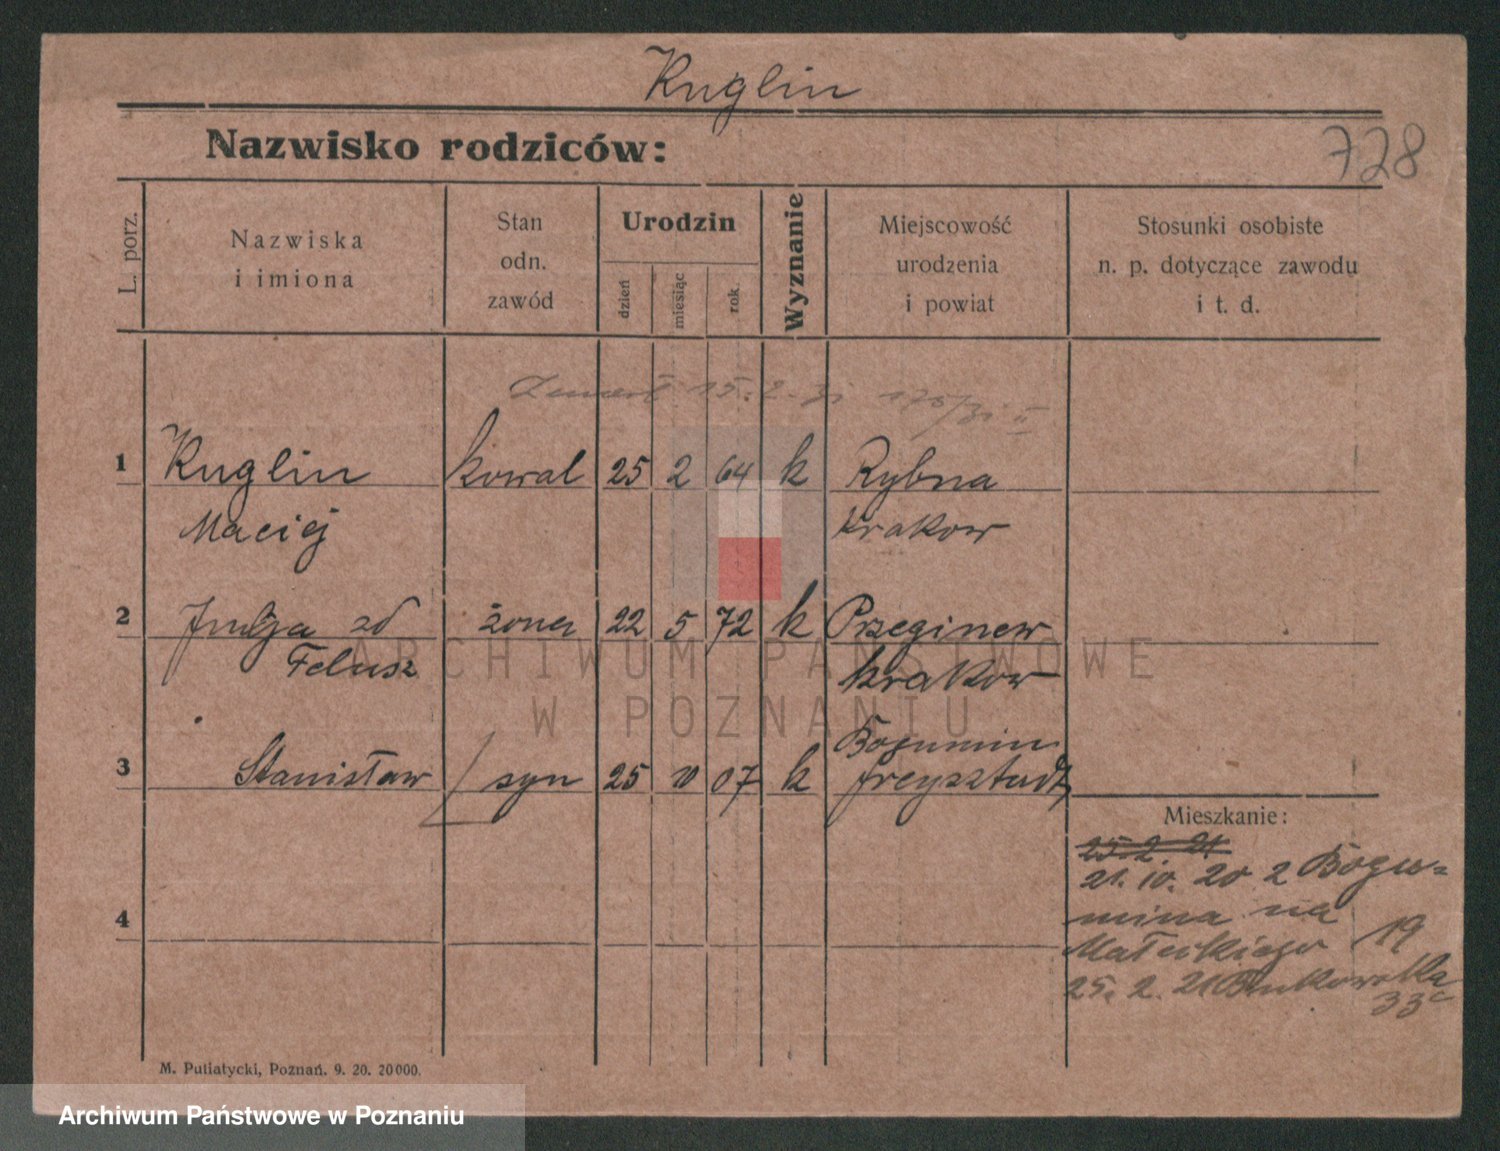 Kuglin
Nazwisko rodziców:
728
L. porz.
Nazwiska
i imiona
Stan
odn.
zawód
Urodzin
dzień
miesiąc
rok.
Wyznanie
Miejscowość
urodzenia
i powiat
Stosunki osobiste
n. p. dotyczące zawodu
i t. d.
Zmarł 15. 2. 31 178/31 II
1 Kuglin kowal 25 2 64 k Rybna
Maciej Krakow
2 Julja zd żona 22 5 72 k Przeginew
Felusz Krakow
Bogumin
3 Stanisław syn 25 10 07 k freysztadt
Mieszkanie:
25. 2. 21
21. 10. 20 z Bogu=
mina na
Małeckiego 19
25. 2. 21 Bukowska
33c
4
M. Putiatycki, Poznań. 9. 20. 20000.
ARCHIWUM PAŃSTWOWE
W POZNANIU
Archiwum Państwowe w Poznaniu